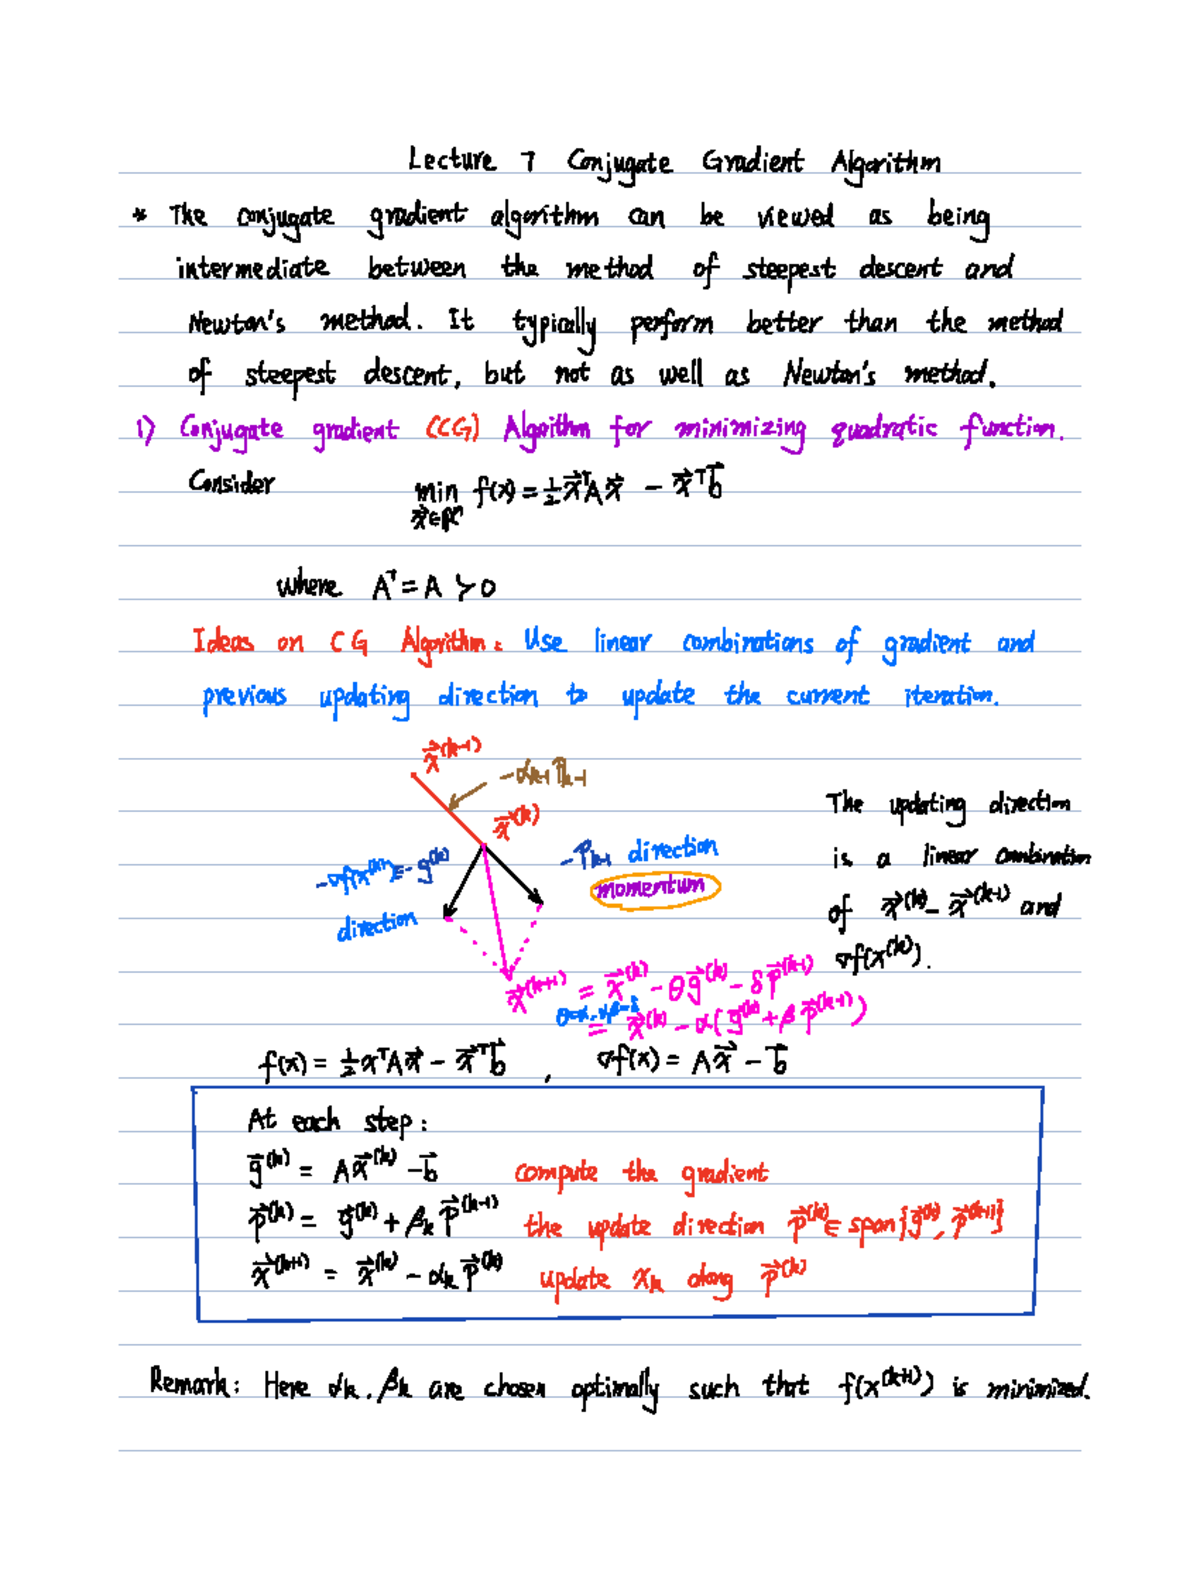 Lecture 7 Conjugate Gradient Algorithm
* The conjugate gradient algorithm can be viewed as being
intermediate between the method of steepest descent and
Newton's method. It typically perform better than the method
of steepest descent, but not as well as Newton's method.
1) Conjugate gradient (CG) Algorithm for minimizing quadratic function.
Consider min f(x) = ½ x⃗ᵀA x⃗ − x⃗ᵀb⃗
x⃗∈ℝⁿ
where Aᵀ = A ≻ 0
Ideas on CG Algorithm: Use linear combinations of gradient and
previous updating direction to update the current iteration.
x⃗^(k-1)
-α_{k-1} P_{k-1}
x⃗^(k)
The updating direction
is a linear combination
of x⃗^(k) − x⃗^(k-1) and
∇f(x^(k)).
-∇f(x^(k)) = -g^(k)
direction
-P_{k-1} direction
momentum
x⃗^(k+1) = x⃗^(k) − θg⃗^(k) − δp⃗^(k-1)
θ=α, αβ=δ
= x⃗^(k) − α(g⃗^(k) + β p⃗^(k-1))
f(x) = ½ xᵀA x⃗ − x⃗ᵀb⃗ , ∇f(x) = A x⃗ − b⃗
At each step:
g⃗^(k) = A x⃗^(k) − b⃗ compute the gradient
p⃗^(k) = g⃗^(k) + β_k p⃗^(k-1) the update direction p⃗^(k) ∈ span{g⃗^(k), p⃗^(k-1)}
x⃗^(k+1) = x⃗^(k) − α_k p⃗^(k) update x_k along p⃗^(k)
Remark: Here α_k, β_k are chosen optimally such that f(x^(k+1)) is minimized.